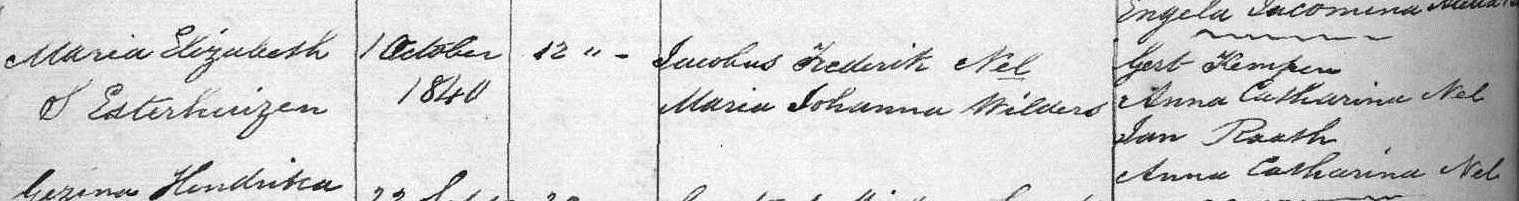 Engela Jacomina
Maria Elizabeth 1 October 12 " - Jacobus Frederik Nel Gert Kempen
Esterhuizen 1840 Maria Johanna Wilders Anna Catharina Nel
Jan Raath
Gezina Hendrika 22 Anna Catharina Nel